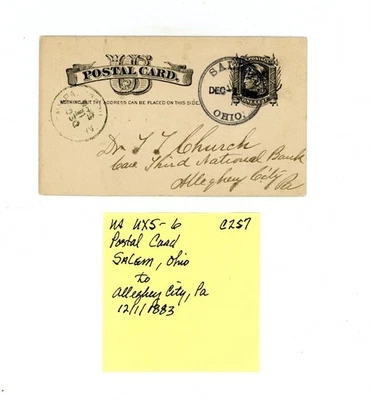 US
POSTAL CARD.
NOTHING BUT THE ADDRESS CAN BE PLACED ON THIS SIDE.
SALEM
DEC
OHIO.
Dr T T Church
Care Third National Bank
Allegheny City
Pa
US UX5-6 C257
Postal Card
SALEM, Ohio
to
Allegheny City, Pa
12/1/1883